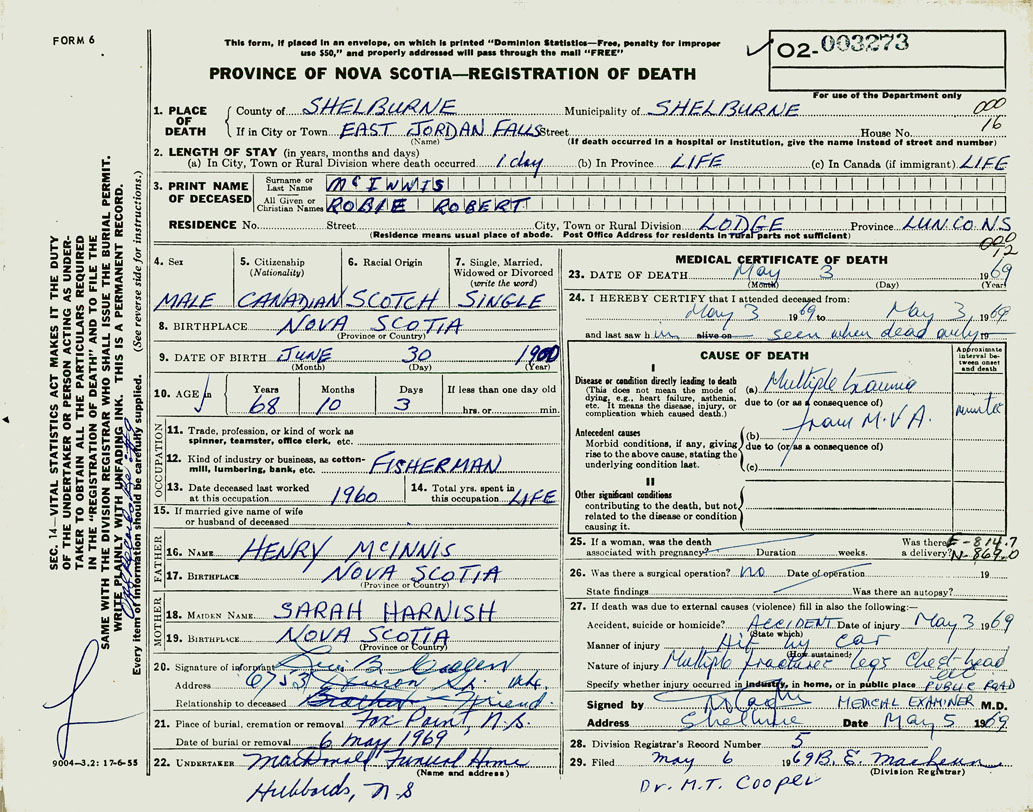 FORM 6
This form, if placed in an envelope, on which is printed "Dominion Statistics—Free, penalty for improper
use $50," and properly addressed will pass through the mail "FREE"
O2-003273
PROVINCE OF NOVA SCOTIA—REGISTRATION OF DEATH
For use of the Department only
1. PLACE OF DEATH County of SHELBURNE Municipality of SHELBURNE 000
If in City or Town EAST JORDAN FALLS Street House No. 16
(Name) (If death occurred in a hospital or institution, give the name instead of street and number)
2. LENGTH OF STAY (in years, months and days)
(a) In City, Town or Rural Division where death occurred 1 day (b) In Province LIFE (c) In Canada (if immigrant) LIFE
3. PRINT NAME OF DECEASED Surname or Last Name McINNIS
All Given or Christian Names ROBIE ROBERT
RESIDENCE No. Street City, Town or Rural Division LODGE Province LUN.CO.N.S
(Residence means usual place of abode. Post Office Address for residents in rural parts not sufficient)
000
12
4. Sex MALE
5. Citizenship (Nationality) CANADIAN
6. Racial Origin SCOTCH
7. Single, Married, Widowed or Divorced (write the word) SINGLE
8. BIRTHPLACE NOVA SCOTIA
(Province or Country)
9. DATE OF BIRTH JUNE 30 1900
(Month) (Day) (Year)
10. AGE in Years Months Days If less than one day old
68 10 3 hrs. or min.
OCCUPATION
11. Trade, profession, or kind of work as
spinner, teamster, office clerk, etc.
12. Kind of industry or business, as cotton-
mill, lumbering, bank, etc. FISHERMAN
13. Date deceased last worked
at this occupation 1960
14. Total yrs. spent in
this occupation LIFE
15. If married give name of wife
or husband of deceased
FATHER
16. NAME HENRY McINNIS
17. BIRTHPLACE NOVA SCOTIA
(Province or Country)
MOTHER
18. MAIDEN NAME SARAH HARNISH
19. BIRTHPLACE NOVA SCOTIA
(Province or Country)
20. Signature of informant
Address 6753
Relationship to deceased Brother Friend.
21. Place of burial, cremation or removal Fox Point, N.S.
Date of burial or removal 6 May 1969
22. UNDERTAKER MacDonald Funeral Home
(Name and address)
Hubbards, N S
MEDICAL CERTIFICATE OF DEATH
23. DATE OF DEATH May 3 1969
(Month) (Day) (Year)
24. I HEREBY CERTIFY that I attended deceased from:
May 3 1969 to May 3, 1969
and last saw him alive on seen when dead only 19
CAUSE OF DEATH
Approximate interval between onset and death
I
Disease or condition directly leading to death
(This does not mean the mode of
dying, e.g., heart failure, asthenia,
etc. It means the disease, injury, or
complication which caused death.)
(a) Multiple trauma
due to (or as a consequence of)
from M.V.A.
Antecedent causes
Morbid conditions, if any, giving
rise to the above cause, stating the
underlying condition last.
(b)
due to (or as a consequence of)
(c)
II
Other significant conditions
contributing to the death, but not
related to the disease or condition
causing it.
25. If a woman, was the death Was there E-814.7
associated with pregnancy? Duration weeks. a delivery? N-869.0
26. Was there a surgical operation? no Date of operation 19
State findings Was there an autopsy?
27. If death was due to external causes (violence) fill in also the following:—
Accident, suicide or homicide? ACCIDENT Date of injury May 3 1969
(State which)
Manner of injury Hit by car
(How sustained)
Nature of injury Multiple fractures legs chest-head
etc
Specify whether injury occurred in industry, in home, or in public place PUBLIC ROAD
Signed by MEDICAL EXAMINER M.D.
Address Shelburne Date May 5 1969
28. Division Registrar's Record Number 5
29. Filed May 6 1969 B. E.
(Division Registrar)
Dr. M.T. Cooper
SEC. 14—VITAL STATISTICS ACT MAKES IT THE DUTY
OF THE UNDERTAKER OR PERSON ACTING AS UNDER-
TAKER TO OBTAIN ALL THE PARTICULARS REQUIRED
IN THE "REGISTRATION OF DEATH" AND TO FILE THE
SAME WITH THE DIVISION REGISTRAR WHO SHALL ISSUE THE BURIAL PERMIT.
WRITE PLANLY WITH UNFADING INK. THIS IS A PERMANENT RECORD.
Every item of information should be carefully supplied. (See reverse side for instructions.)
9004-3.2: 17-6-55